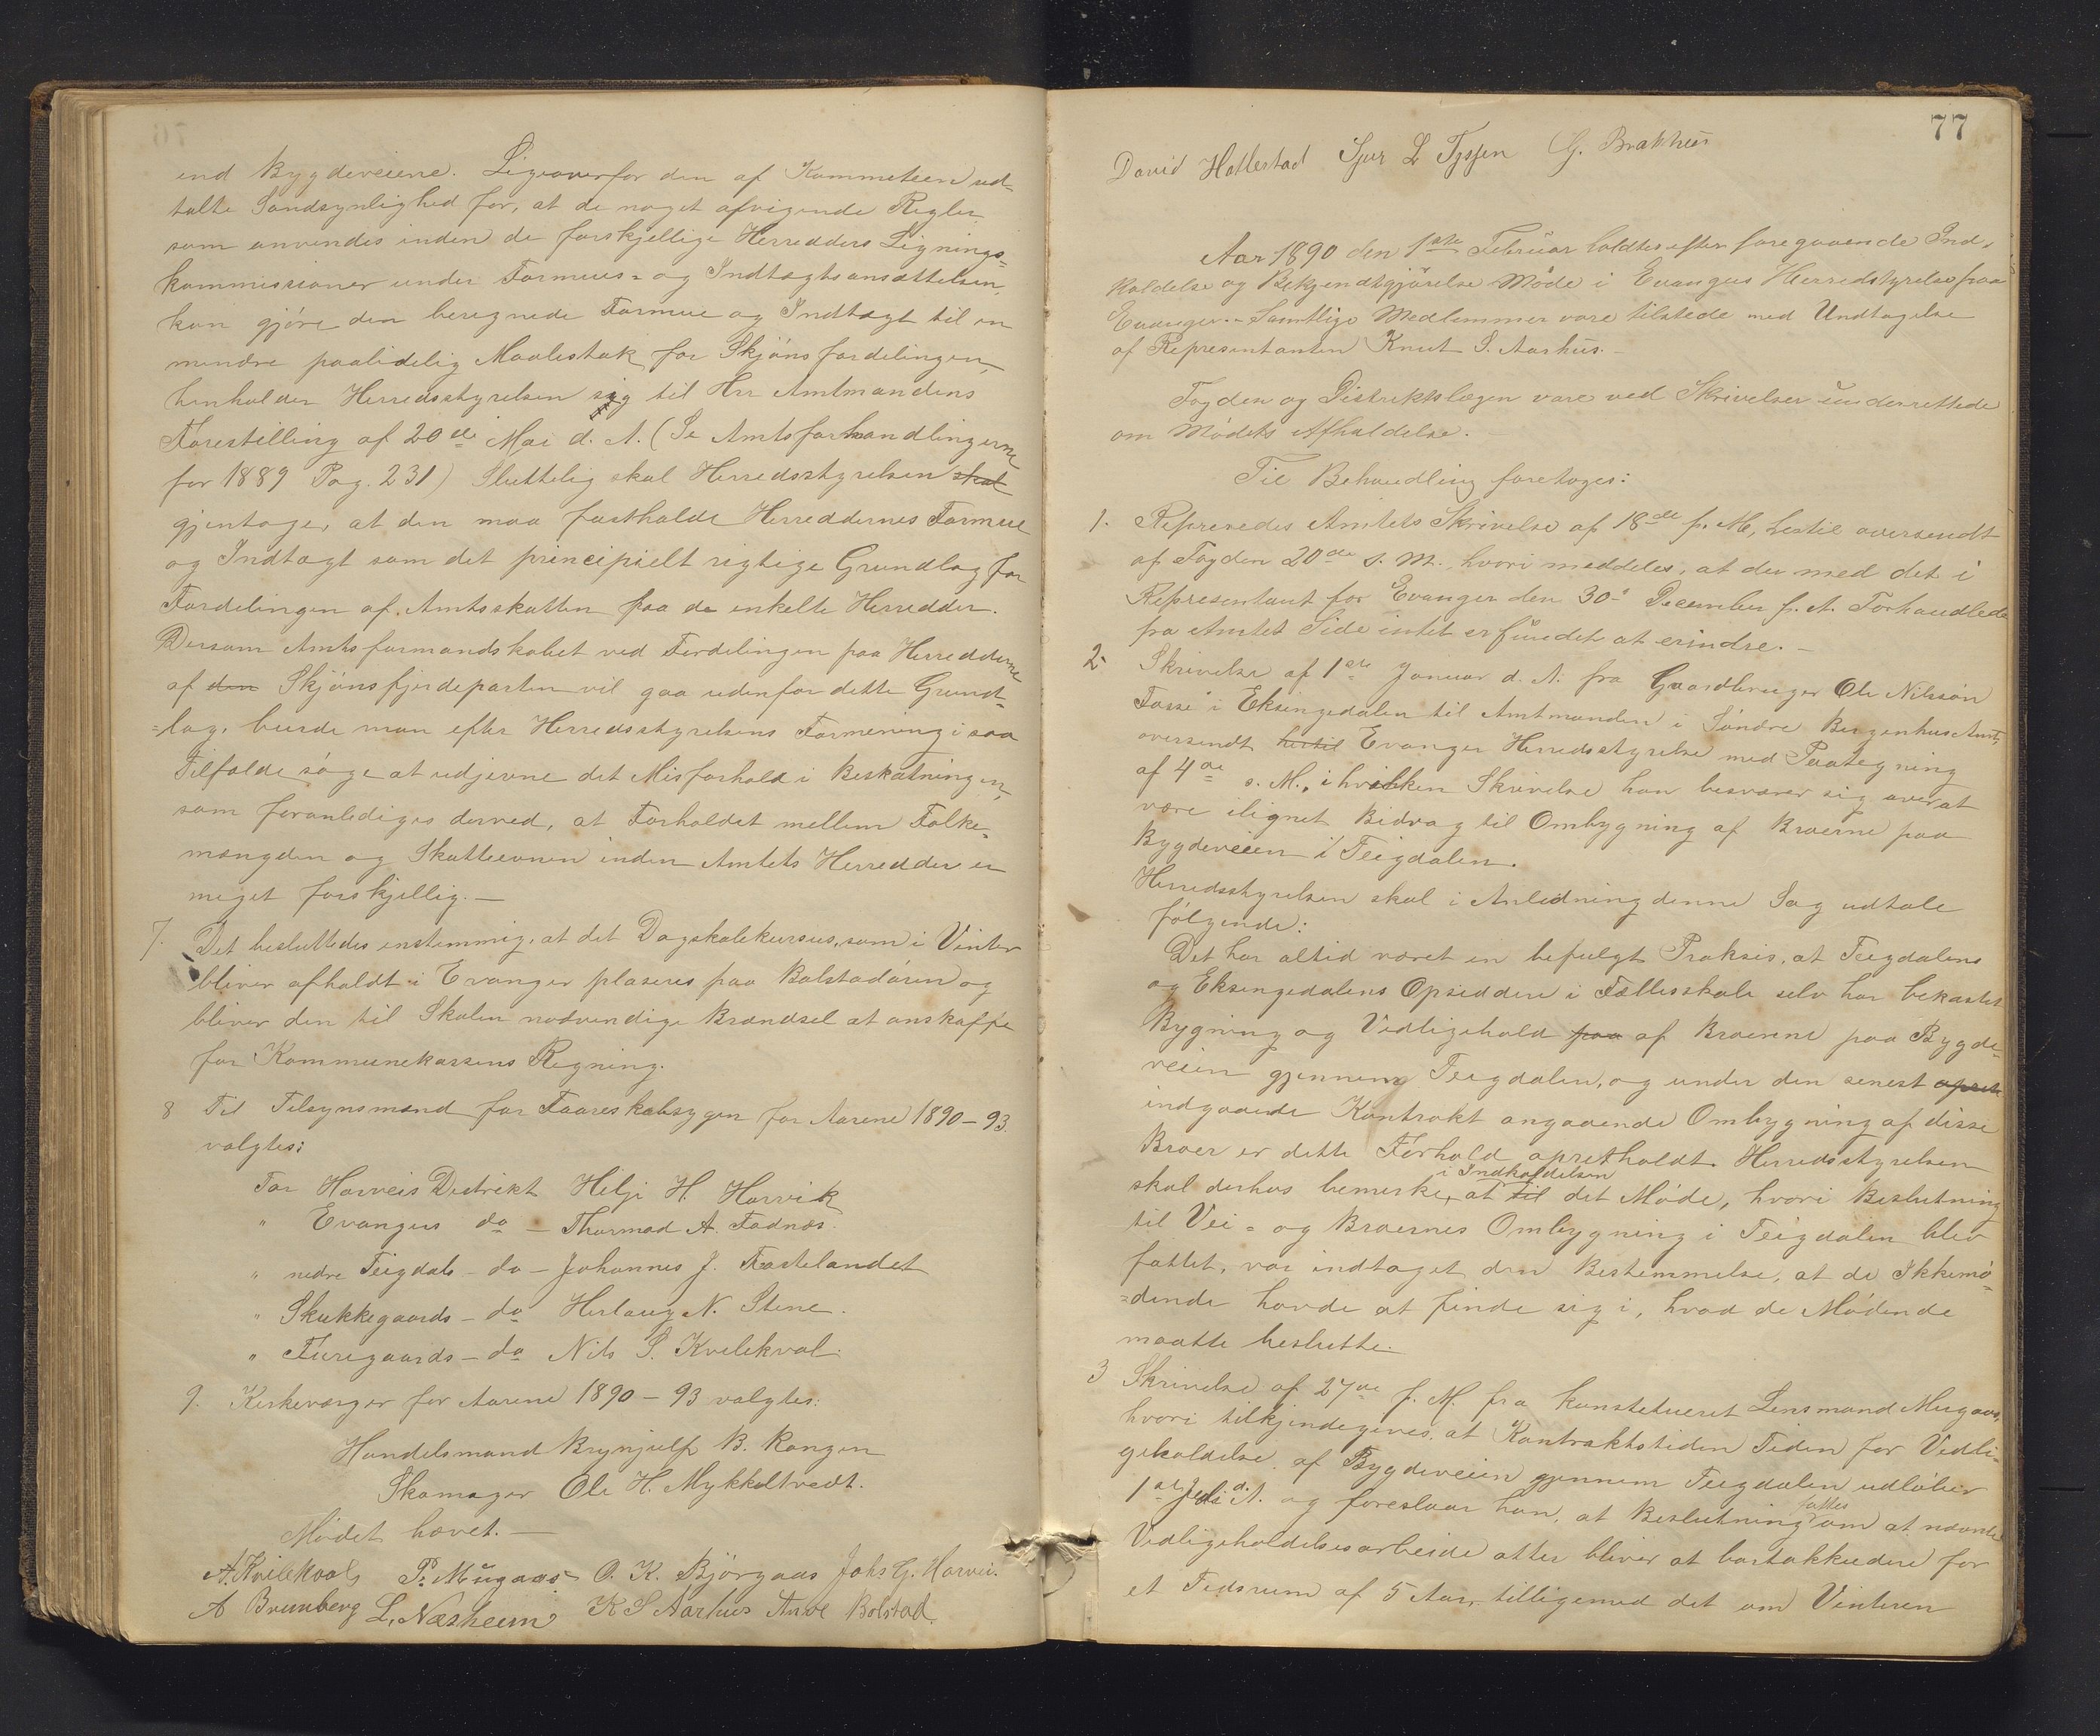 end Bygdeveiene. Ligeoverfor den af Kommeteen ud-
talte Sandsynlighed for, at de noget afvigende Regler
som anvendes inden de forskjellige Herredders Lignings-
kommissioner under Formues- og Indtægtsansættelsen,
kan gjöre den beregnede Formue og Indtægt til en
mindre paalidelig Maalestok for Skjönsfordelingen,
henholder Herredsstyrelsen sig til Hr Amtmandens
Forestilling af 20de Mai d. A. (Se Amtsforhandlingerne
for 1889 Pag. 231) Sluttelig skal Herredsstyrelsen skal
gjentage, at den maa fastholde Herreddernes Formue
og Indtægt som det principielt rigtige Grundlag for
Fordelingen af Amtsskatten paa de enkelte Herredder.
Dersom Amtsformandskabet ved Fordelingen paa Herredderne
af den Skjönsfjerdeparten vil gaa udenfor dette Grund-
=lag, burde man efter Herredsstyrelsens Formening i saa
Tilfælde söge at udjevne det Misforhold i Beskatningen,
som foranlediges derved, at Forholdet mellem Folke-
mængden og Skatteevnen inden Amtets Herredder er
meget forskjellig. —
7. Det besluttedes enstemmig, at det Dagskolekursus, som i Vinter
bliver afholdt i Evanger plaseres paa Bolstadören og
bliver den til Skolen nødvendige Brændsel at anskaffe
for Kommunekassens Regning.
8 Til Tilsynsmænd for Faareskabsygen for Aarene 1890-93.
valgtes:
For Horveis Distrikt Helje H. Horvik
" Evangers do - Thormod A. Fadnæs.
" nedre Teigdals - do - Johannes J. Fastelandet
" Skukkegaards - do Herlaug N. Stene.
" Furegaards - do Nils S. Kvilekval.
9. Kirkeværger for Aarene 1890-93 valgtes:
Handelsmand Brynjulf B. Rongen
Skomager Ole H. Mykkeltvedt.
Mödet hævet. —
A. Kvilekval P. Mugaas O. K. Björgaas Johs G. Horvei.
A Brunborg L. Næsheim K S Aarhus Anve Bolstad.
77
David Hallestad Sjur L Tyssen G. Brakhus
Aar 1890 den 1ste Februar holdtes efter foregaaende Ind-
kaldelse og Bekjendtgjörelse Möde i Evangers Herredstyrelse paa
Evanger. - Samtlige Medlemmer vare tilstede med Undtagelse
af Representanten Knut S. Aarhus. -
Fogden og Distriktslægen vare ved Skrivelser underrettede
om Mödets Afholdelse. -
Til Behandling foretoges:
1. Refereredes Amtets Skrivelse af 18de f. M, hertil oversendt
af Fogden 20de s. M., hvori meddeles, at der med det i
Representant for Evanger den 30te December f. A. Forhandlede
fra Amtets Side intet er fundet at erindre. -
2. Skrivelse af 1ste Januar d. A. fra Gaardbruger Ole Nilssön
Fosse i Eksingedalen til Amtmanden i Söndre Bergenhus Amt,
oversendt hertil Evanger Herredsstyrelse med Paategning
af 4de s. M., i hvilken Skrivelse han besværer sig over at
være ilignet Bidrag til Ombygning af Broerne paa
Bygdeveien i Teigdalen.
Herredsstyrelsen skal i Anledning denne Sag udtale
fölgende:
Det har altid været en befulgt Praksis, at Teigdalens
og Eksingedalens Opsiddere i Fællesskab selv har bekostet
Bygning og Vedligehold paa af Broerne paa Bygde-
veien gjennem Teigdalen, og under den senest opret
indgaaede Kontrakt angaaende Ombygning af disse
Broer er dette Forhold opretholdt. Herredsstyrelsen
i Indkaldelsen
skal derhos bemerke, at til det Möde, hvori Beslutning
til Vei- og Broernes Ombygning i Teigdalen blev
fattet, var indtaget den Bestemmelse, at de Ikkemö-
=dende havde at finde sig i, hvad de Mödende
maatte beslutte.
3 Skrivelse af 27de f. M. fra konstitueret Lensmand Mugaas,
hvori tilkjendegives, at Kontraktstiden Tiden for Vedli-
geholdelse af Bygdeveien gjennem Teigdalen udlöber
1ste Juli d. A. og foreslaar han, at Beslutning fattes om at nævnte
Vedligeholdelsesarbeide atter bliver at bortakkordere for
et Tidsrum af 5 Aar, tilligemed det om Vinteren